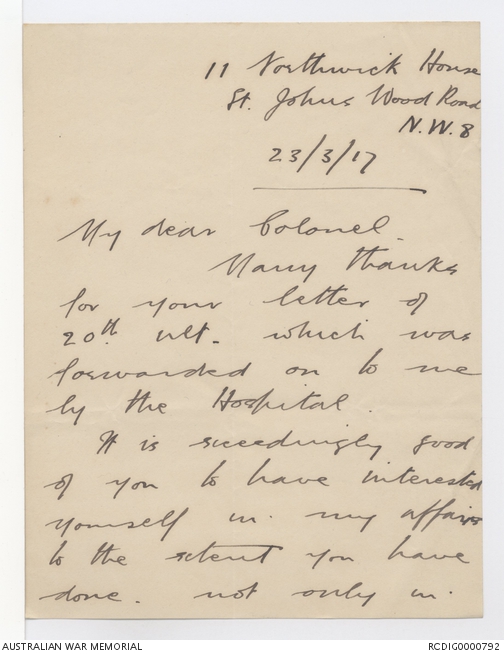 11 Northwick House
St. Johns Wood Road
N.W.8
23/3/17
My dear Colonel.
Many thanks
for your letter of
20th ult. which was
forwarded on to me
by the Hospital.
It is exceedingly good
of you to have interested
yourself in my affairs
to the extent you have
done. not only in
AUSTRALIAN WAR MEMORIAL
RCDIG0000792